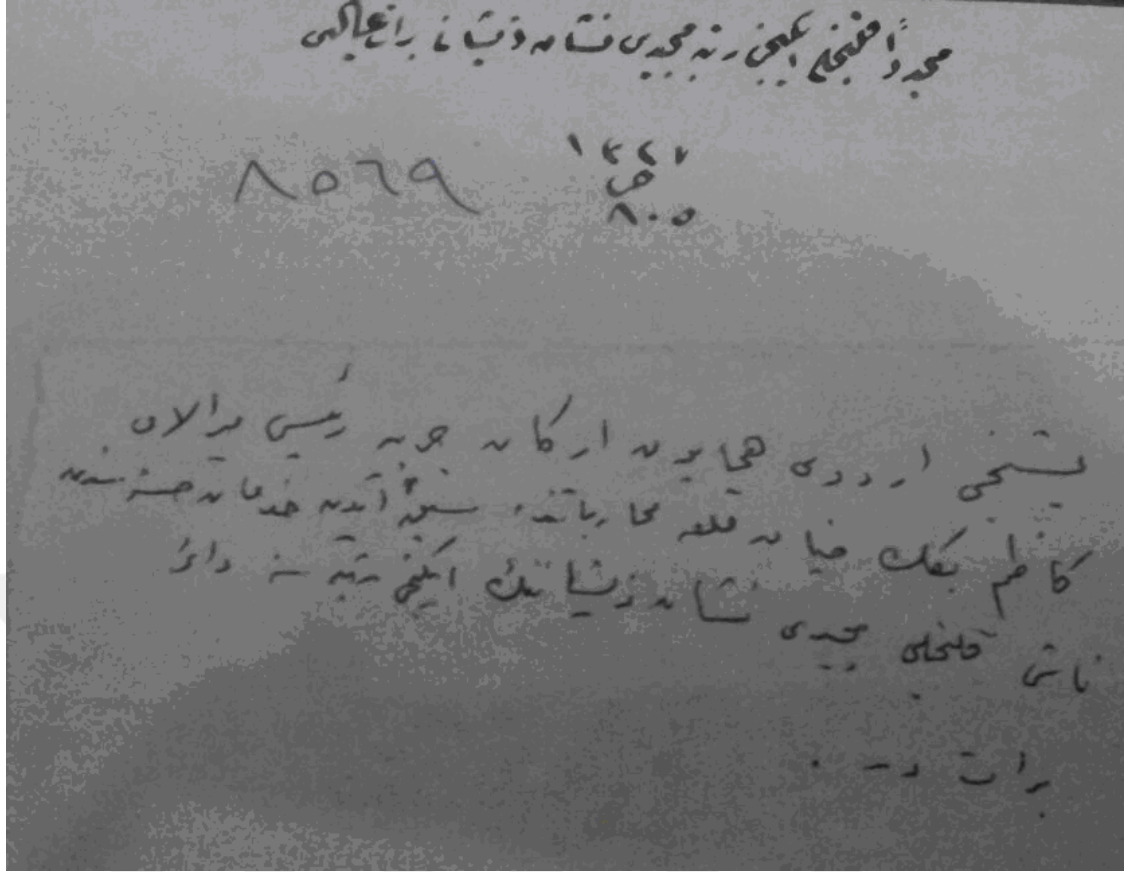 مجدداً قلیچلی ایکنجی رتبه مجیدی نشان ذیشانی برات عالیسی
١٣٣٧
٨٥٦٩
٨٠٥
یشنجی اردوی همایون ارکان حربیه رئیسی میرالای
کاظم بکك محاربات سبق ایدن خدمات حسنه‌سندن
ناشی قلیچلی مجیدی نشان ذیشاننك ایکنجی رتبه‌سنه دائر
براتدر.